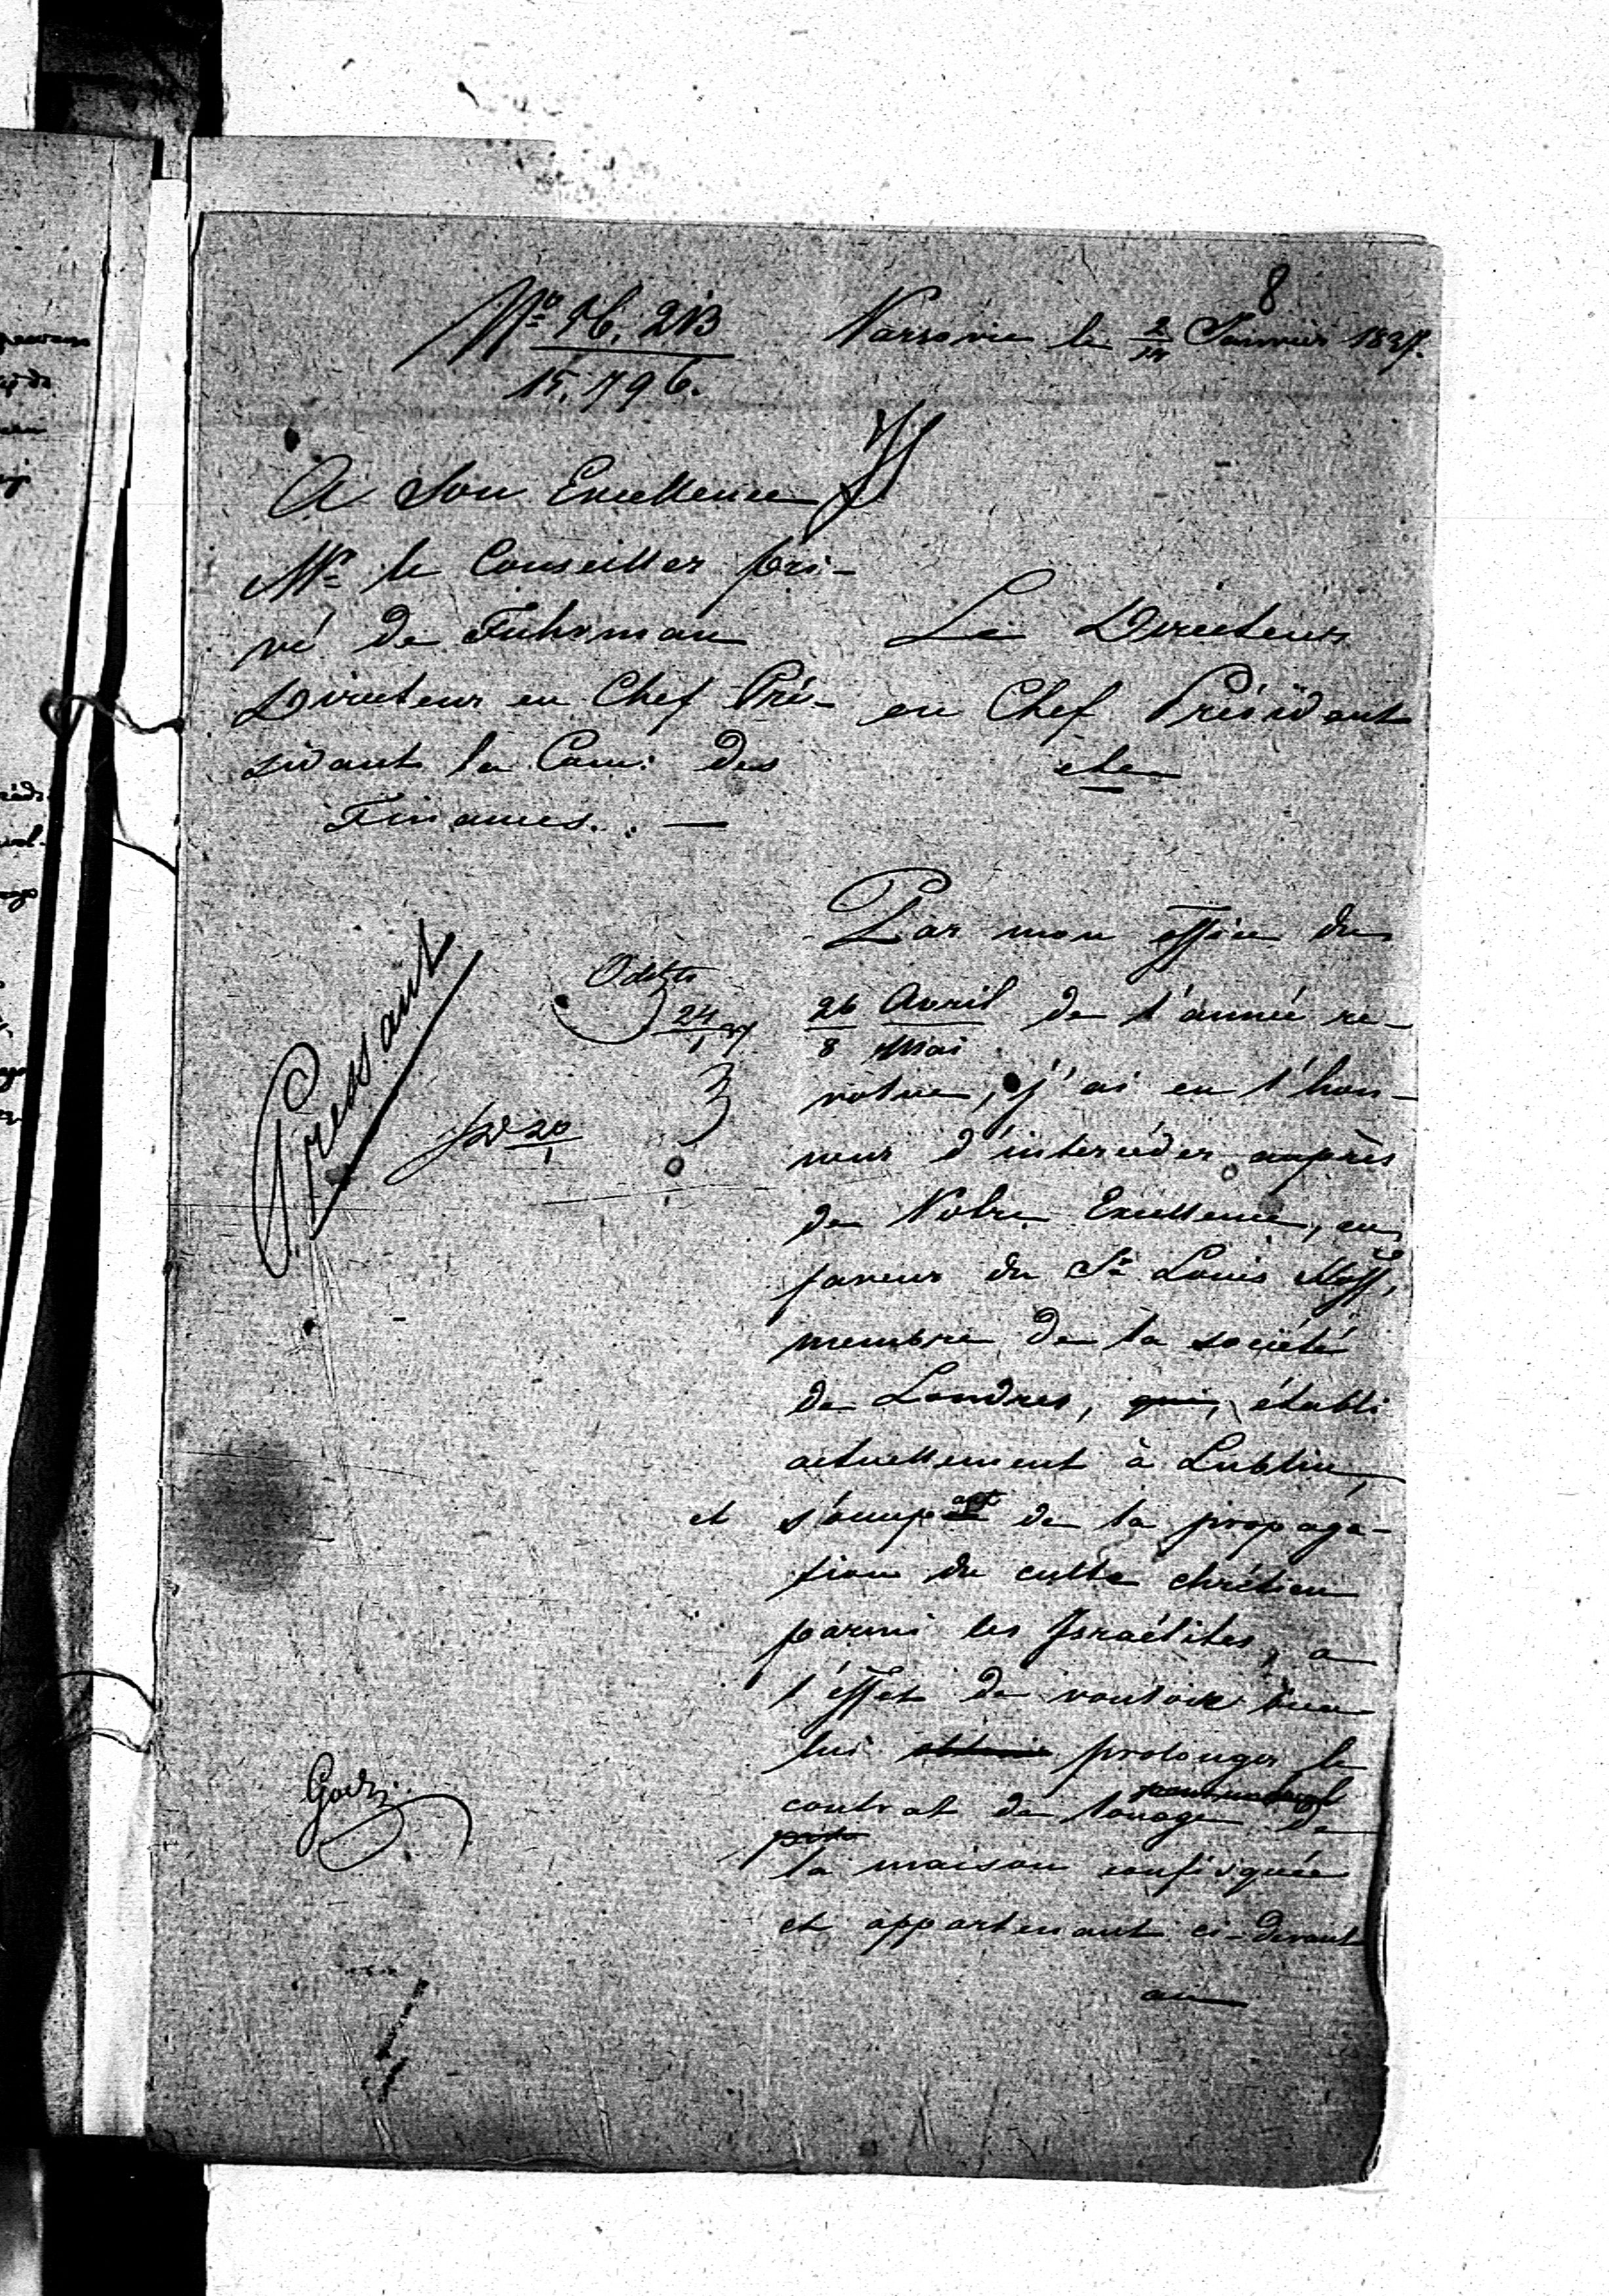 8
Varsovie le 2/14 Janvier 1837.
15,796.
A Son Excellence
Mr le Conseiller pri-
vé de Fuhrman
Directeur en Chef Pré-
sidant la Com: des
Finances. —
Le Directeur
en Chef Président
etc
Pressant
24/1 37
20/1
Par mon office du
26 Avril / 8 Mai de l'année re-
volue, j'ai eu l'hon-
neur d'intercéder auprès
de Votre Excellence, en
faveur du Sr Louis
membre de la société
de Londres, qui, établi
actuellement à Lublin,
et s'occupant de la propaga-
tion du culte chrétien
parmi les Israélites, a
l'effet de vouloir bien
lui prolonger le
contrat de louage de
la maison confisquée
et appartenant ci-devant
au